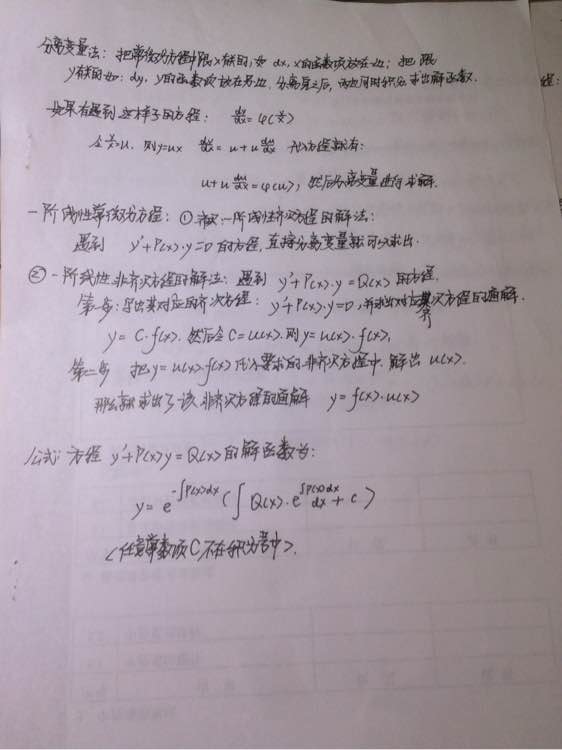 分离变量法：把常微分方程中跟x有关的，如dx，x的函数项放在一边；把跟
y有关的如：dy，y的函数项放在另一边，分离好之后，两边同时积分，求出解函数．
程：
如果有遇到这样子的方程：dy/dx = φ(y/x)
令 y/x = u，则 y=ux dy/dx = u + u du/dx 代入方程就有：
u + u du/dx = φ(u)，然后分离变量进行求解．
一阶线性常微分方程：① 一阶线性齐次方程的解法：
遇到 y'+P(x)·y=0 的方程，直接分离变量就可以求出．
② 一阶线性非齐次方程的解法：遇到 y'+P(x)·y = Q(x) 的方程．
第一步：写出其对应的齐次方程：y'+P(x)·y=0，并求出对应齐次方程的通解．
y = C·f(x)，然后令 C=u(x)，则 y=u(x)·f(x)，
第二步 把 y=u(x)·f(x) 代入要求的非齐次方程中，解出 u(x)．
那么就求出了该非齐次方程的通解 y = f(x)·u(x)
公式：方程 y'+P(x)y = Q(x) 的解函数为：
y = e^{-∫P(x)dx} ( ∫Q(x)·e^{∫P(x)dx} dx + c )
<任意常数项C不在积分号中>．